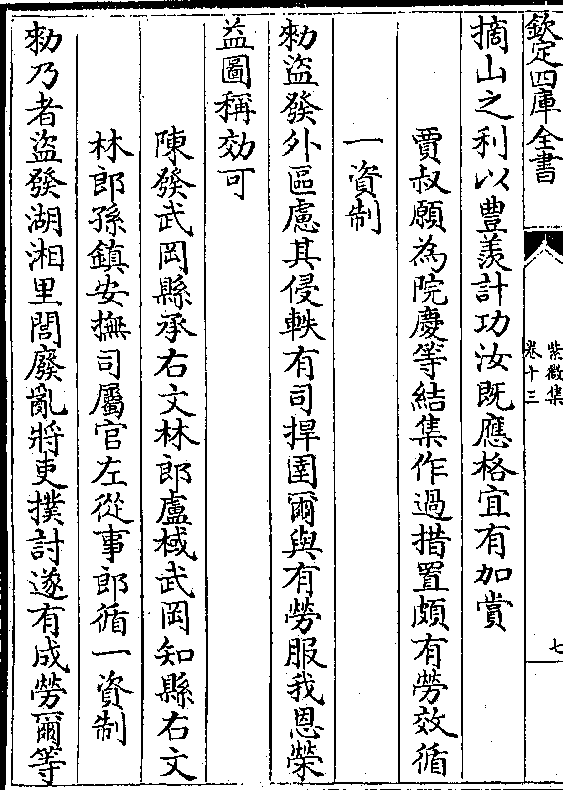 欽定四庫全書
紫微集
卷十三
七
摘山之利以豊羨計功汝既應格宜有加賞
賈叔願為院慶等結集作過措置頗有勞效循
一資制
勑盜發外區慮其侵軼有司捍圉爾與有勞服我恩榮
益圖稱効可
陳發武岡縣承右文林郎盧棫武岡知縣右文
林郎孫鎮安撫司屬官左從事郎循一資制
勑乃者盜發湖湘里閭廢亂將吏撲討遂有成勞爾等